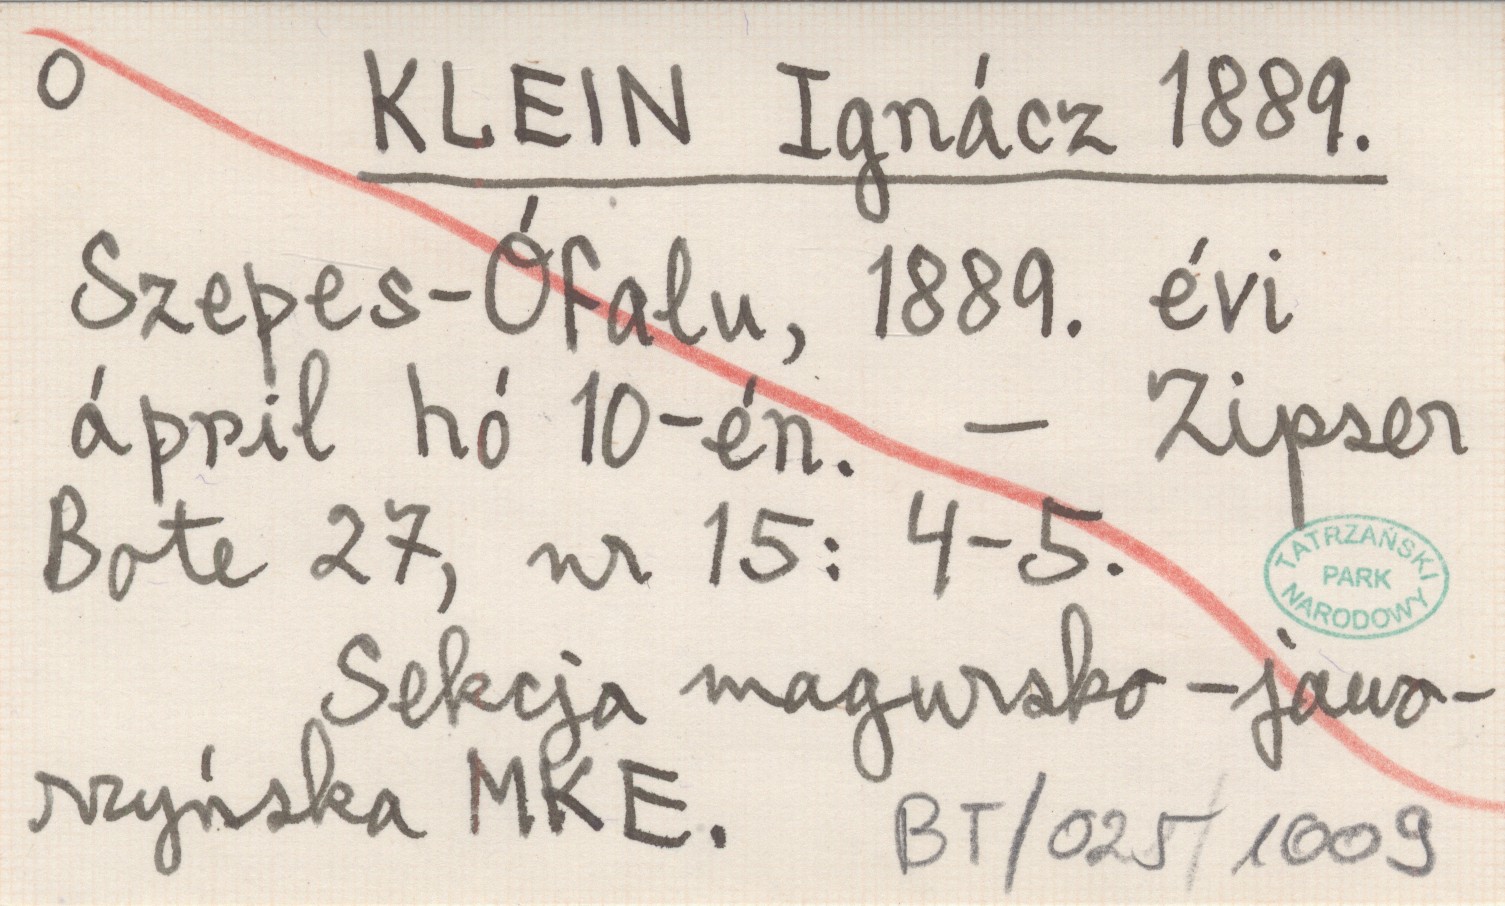 O KLEIN Ignácz 1889.
Szepes-Ófalu, 1889. évi
ápril hó 10-én. — Zipser
Bote 27, nr 15: 4-5.
TATRZAŃSKI
PARK
NARODOWY
Sekcja magursko-jawo-
rzyńska MKE.
BT/025/1009